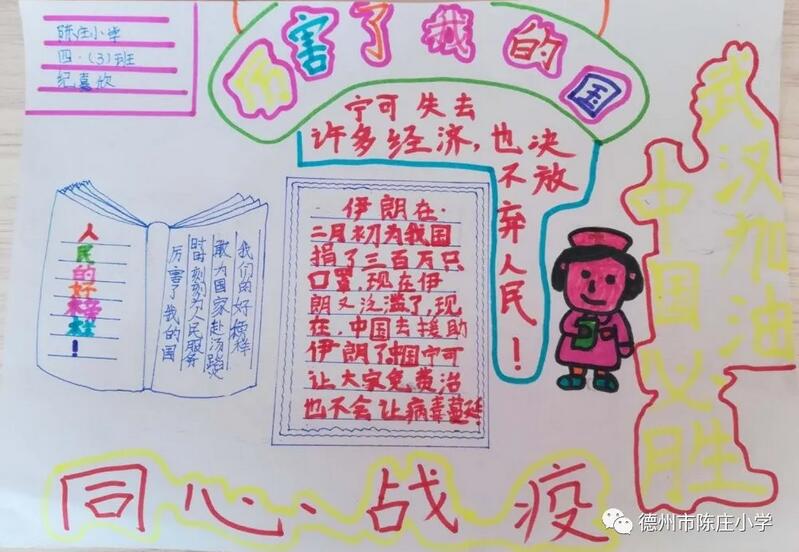 陈庄小学
四.(3)班
纪嘉欣
厉害了我的国
宁可失去
许多经济,也决
不放
弃人民!
武汉加油
中国必胜
人民的好榜样!
我们的好榜样
敢为国家赴汤蹈火
时时刻刻为人民服务
厉害了我的国
伊朗在
二月初为我国
捐了三百万只
口罩,现在伊
朗又泛滥了,现
在,中国去援助
伊朗了中国宁可
让大家免费治
也不会让病毒蔓延
同心、战疫
德州市陈庄小学